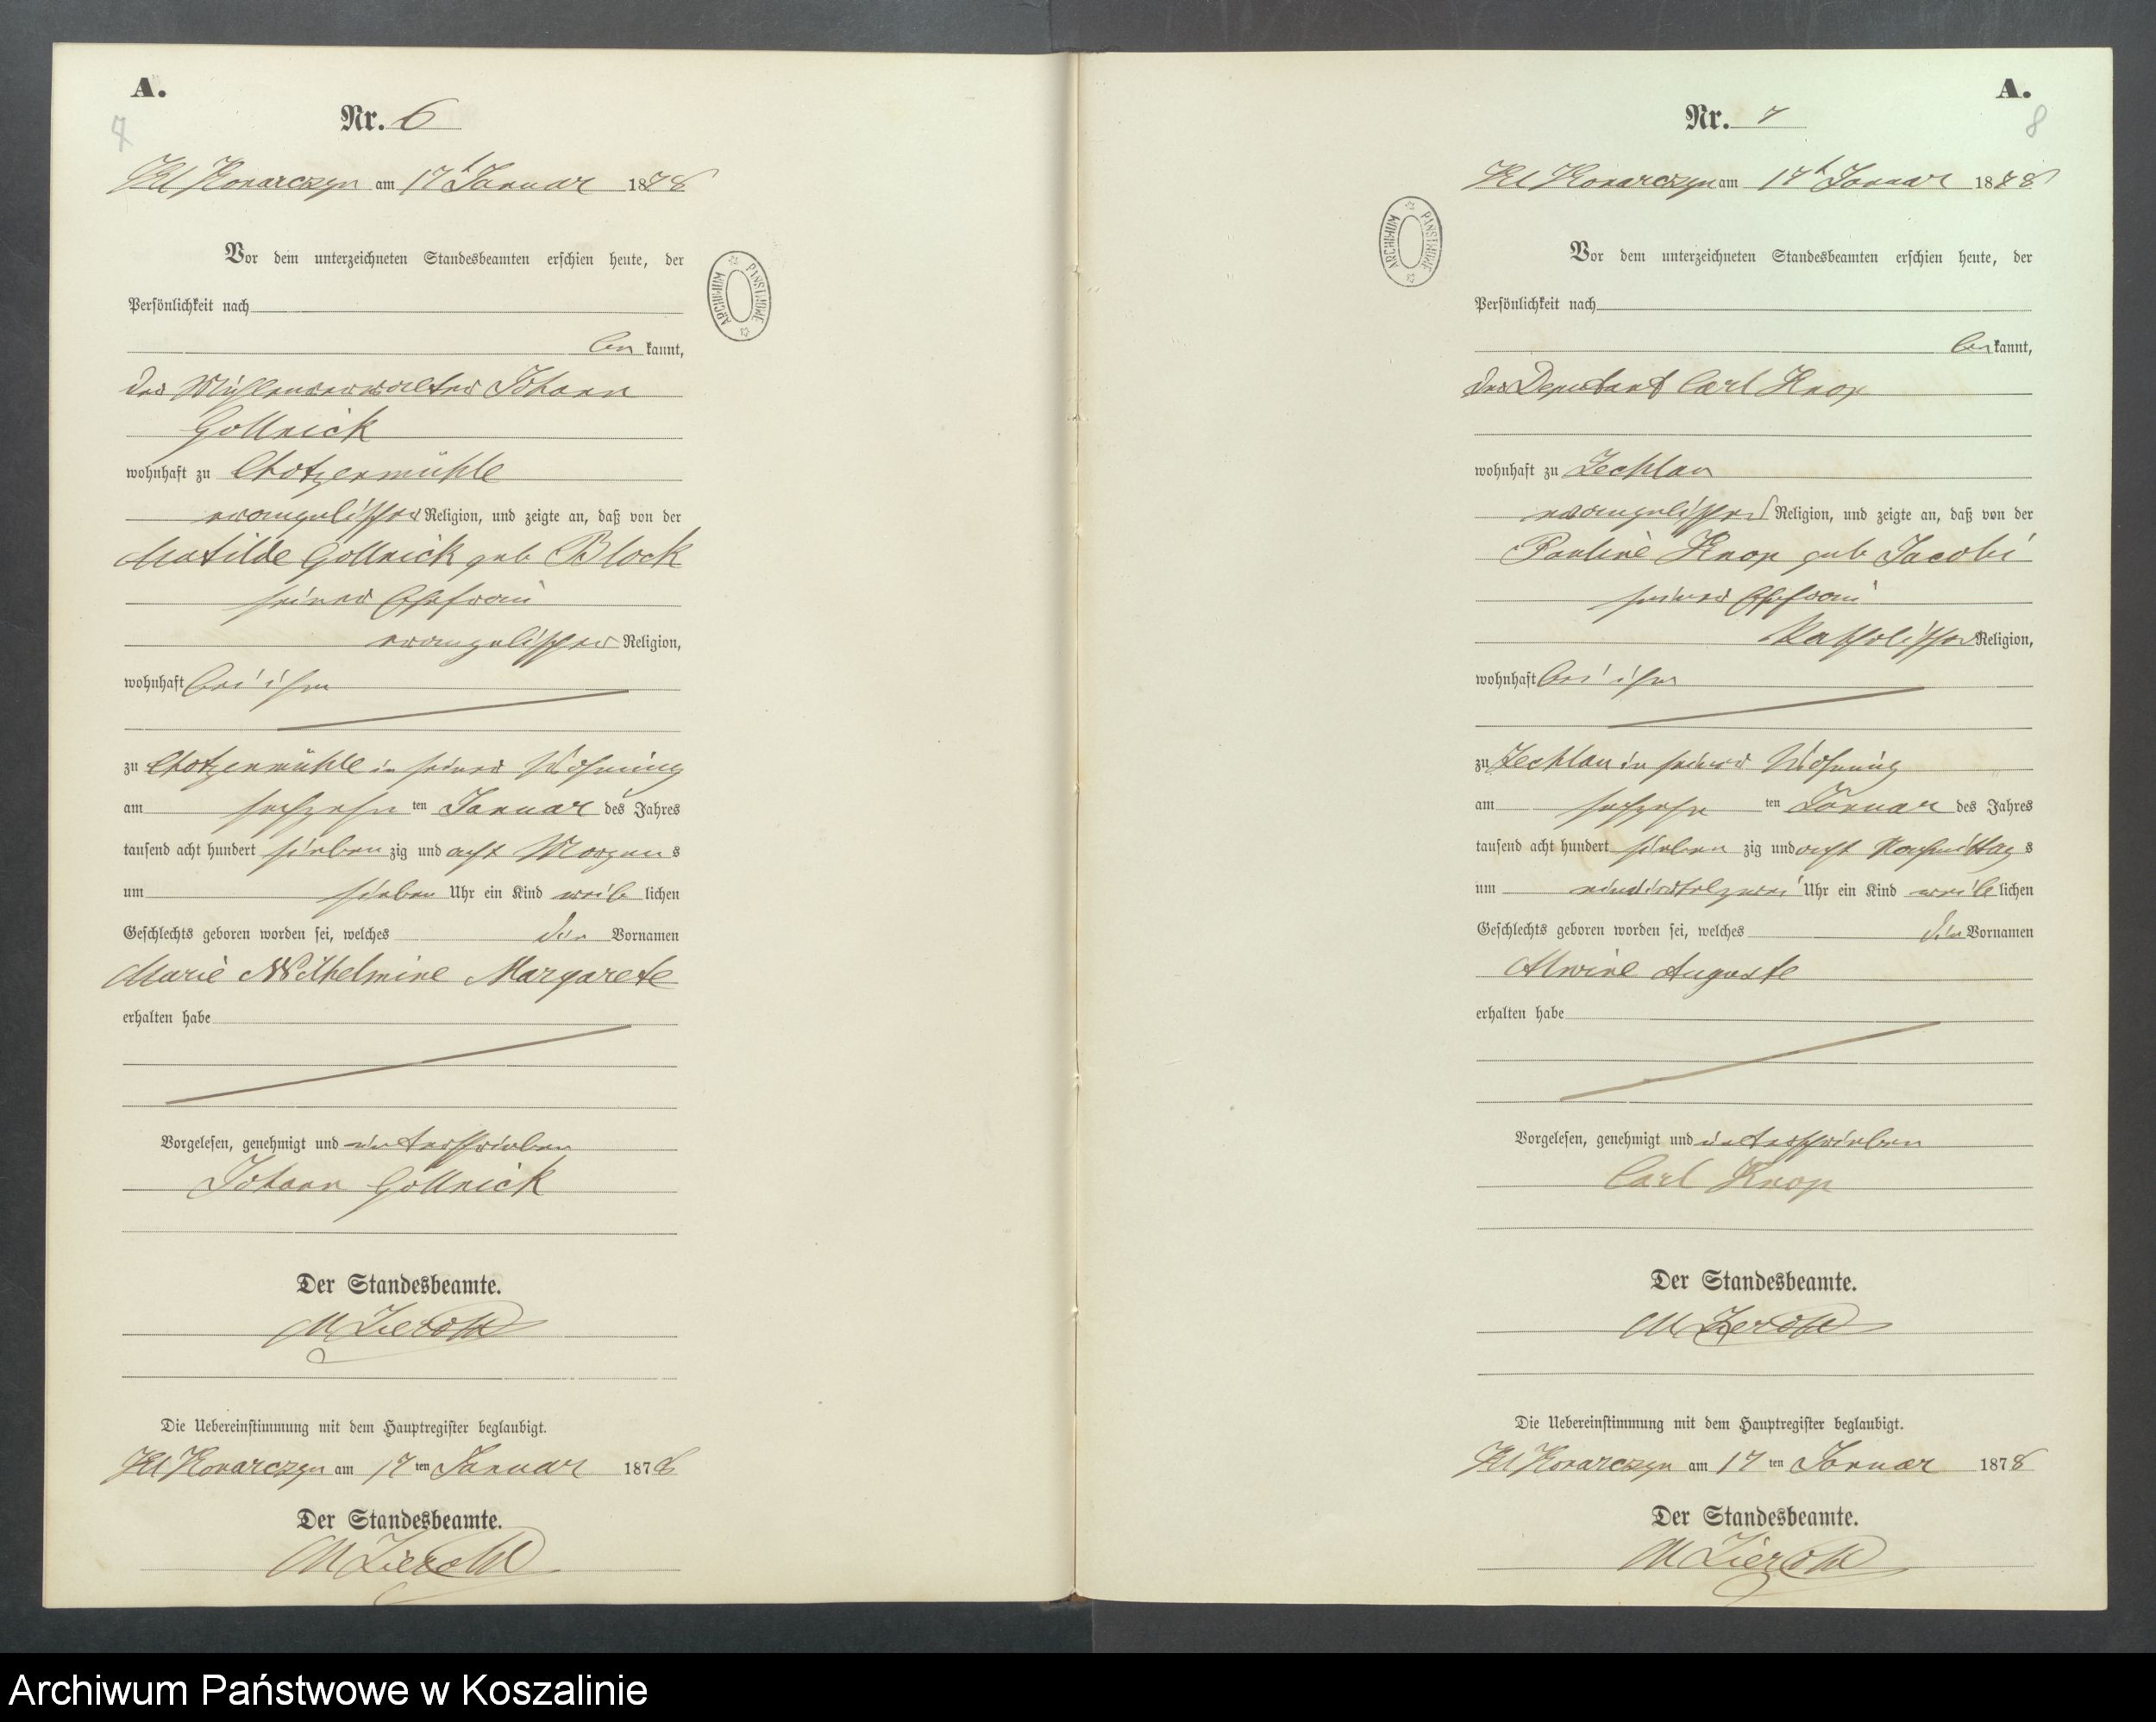 A.
7
Nr. 6
Kl Konarczyn am 17t Januar 1878
Vor dem unterzeichneten Standesbeamten erschien heute, der
Persönlichkeit nach
be kannt,
der Mühlenverwalter Johann
Gollnick
wohnhaft zu Chotzenmühle
evangelischer Religion, und zeigte an, daß von der
Matilde Gollnick geb Block
seiner Ehefrau
evangelischer Religion,
wohnhaft bei ihm
zu Chotzenmühle in seiner Wohnung
am sechzehn ten Januar des Jahres
tausend acht hundert sieben zig und acht Morgens
um sieben Uhr ein Kind weib lichen
Geschlechts geboren worden sei, welches die Vornamen
Marie Wilhelmine Margarete
erhalten habe
Vorgelesen, genehmigt und unterschrieben
Johann Gollnick
Der Standesbeamte.
Die Uebereinstimmung mit dem Hauptregister beglaubigt.
Kl Konarczyn am 17 ten Januar 1878
Der Standesbeamte.
ARCHIWUM PAŃSTWOWE
A.
8
Nr. 7
Kl Konarczyn am 17t Januar 1878
Vor dem unterzeichneten Standesbeamten erschien heute, der
Persönlichkeit nach
be kannt,
der Deputant Carl Knop
wohnhaft zu Zechlau
evangelischer Religion, und zeigte an, daß von der
Pauline Knop geb Jacobi
seiner Ehefrau
Katholischer Religion,
wohnhaft bei ihm
zu Zechlau in seiner Wohnung
am sechzehn ten Januar des Jahres
tausend acht hundert sieben zig und acht Nachmittags
um einviertelzwei Uhr ein Kind weib lichen
Geschlechts geboren worden sei, welches die Vornamen
Alwine Auguste
erhalten habe
Vorgelesen, genehmigt und unterschrieben
Carl Knop
Der Standesbeamte.
Die Uebereinstimmung mit dem Hauptregister beglaubigt.
Kl Konarczyn am 17 ten Januar 1878
Der Standesbeamte.
ARCHIWUM PAŃSTWOWE
Archiwum Państwowe w Koszalinie